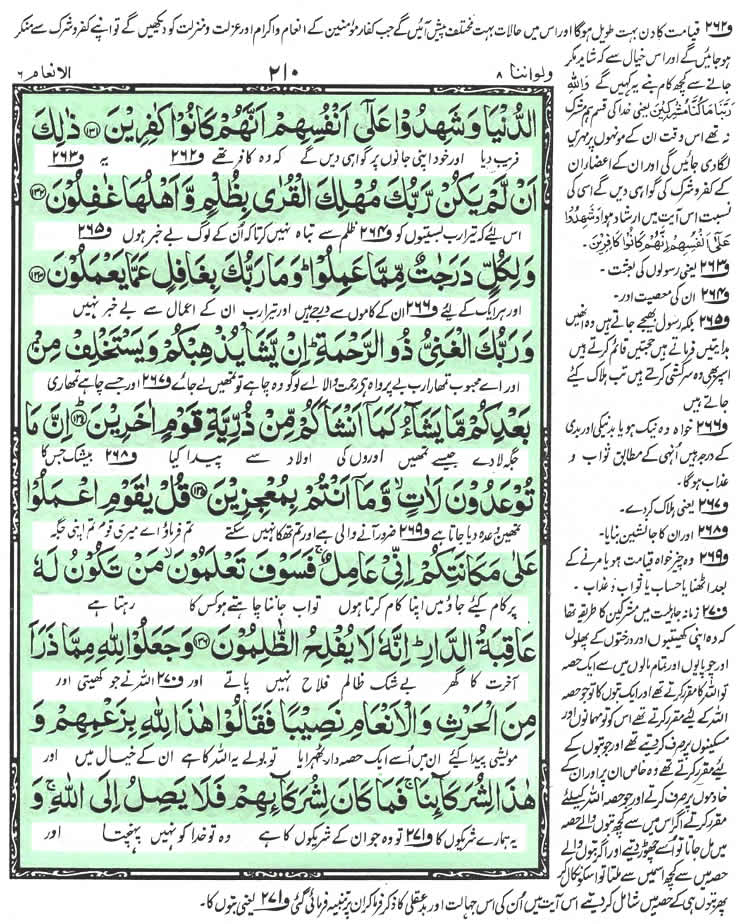 ولواننا ٨
٢١٠
الانعام ٦
الدُّنْيَا وَشَهِدُوْا عَلٰٓى اَنْفُسِهِمْ اَنَّهُمْ كَانُوْا كٰفِرِيْنَ ﴿۱۳۰﴾ ذٰلِكَ
فریب دیا اور خود اپنی جانوں پر گواہی دیں گے کہ وہ کافر تھے ف۲۶۲ یہ ف۲۶۳
اَنْ لَّمْ يَكُنْ رَّبُّكَ مُهْلِكَ الْقُرٰى بِظُلْمٍ وَّاَهْلُهَا غٰفِلُوْنَ ﴿۱۳۱﴾
اس لیے کہ تیرا رب بستیوں کو ف۲۶۴ ظلم سے تباہ نہیں کرتا کہ اُن کے لوگ بے خبر ہوں ف۲۶۵
وَلِكُلٍّ دَرَجٰتٌ مِّمَّا عَمِلُوْا ؕ وَمَا رَبُّكَ بِغَافِلٍ عَمَّا يَعْمَلُوْنَ ﴿۱۳۲﴾
اور ہر ایک کے لیے ف۲۶۶ ان کے کاموں سے درجے ہیں اور تیرا رب ان کے اعمال سے بے خبر نہیں
وَرَبُّكَ الْغَنِيُّ ذُو الرَّحْمَةِ ؕ اِنْ يَّشَاْ يُذْهِبْكُمْ وَيَسْتَخْلِفْ مِنْۢ
اور اے محبوب تمہارا رب بے پرواہ ہے رحمت والا اے لوگو وہ چاہے تو تمہیں لے جائے ف۲۶۷ اور جسے چاہے تمھاری
بَعْدِكُمْ مَّا يَشَآءُ كَمَاۤ اَنْشَاَكُمْ مِّنْ ذُرِّيَّةِ قَوْمٍ اٰخَرِيْنَ ﴿۱۳۳﴾ اِنَّ مَا
جگہ لادے جیسے تمھیں اوروں کی اولاد سے پیدا کیا ف۲۶۸ بیشک جس کا
تُوْعَدُوْنَ لَاٰتٍ ۙ وَّمَاۤ اَنْتُمْ بِمُعْجِزِيْنَ ﴿۱۳۴﴾ قُلْ يٰقَوْمِ اعْمَلُوْا
تمھیں وعدہ دیا جاتا ہے ف۲۶۹ ضرور آنے والی ہے اور تم تھکا نہیں سکتے تم فرماؤ اے میری قوم تم اپنی جگہ
عَلٰى مَكَانَتِكُمْ اِنِّيْ عَامِلٌ ۚ فَسَوْفَ تَعْلَمُوْنَ ۙ مَنْ تَكُوْنُ لَهٗ
پر کام کیے جاؤ میں اپنا کام کرتا ہوں تو اب جاننا چاہتے ہو کس کا رہتا ہے
عَاقِبَةُ الدَّارِ ؕ اِنَّهٗ لَا يُفْلِحُ الظّٰلِمُوْنَ ﴿۱۳۵﴾ وَجَعَلُوْا لِلّٰهِ مِمَّا ذَرَاَ
آخرت کا گھر بے شک ظالم فلاح نہیں پاتے اور ف۲۷۰ اللہ نے جو کھیتی اور
مِنَ الْحَرْثِ وَالْاَنْعَامِ نَصِيْبًا فَقَالُوْا هٰذَا لِلّٰهِ بِزَعْمِهِمْ وَ
مویشی پیدا کیے ان میں اُسے ایک حصہ دار ٹھہرایا تو بولے یہ اللہ کا ہے ان کے خیال میں اور
هٰذَا لِشُرَكَآئِنَا ۚ فَمَا كَانَ لِشُرَكَآئِهِمْ فَلَا يَصِلُ اِلَى اللّٰهِ ۚ وَ
یہ ہمارے شریکوں کا ف۲۷۱ تو وہ جو ان کے شریکوں کا ہے وہ تو خدا کو نہیں پہنچتا اور
ف۲۶۲ قیامت کا دن بہت طویل ہوگا اور اس میں حالات بہت مختلف پیش آئیں گے جب کفار مؤمنین کے انعام و اکرام اور عزت و منزلت کو دیکھیں گے تو اپنے کفر و شرک سے منکر
ہو جائیں گے اور اس خیال سے کہ شاید مکر
جانے سے کچھ کام بنے یہ کہیں گے وَاللّٰهِ
رَبِّنَا مَا كُنَّا مُشْرِكِيْنَ یعنی خدا کی قسم ہم مشرک
نہ تھے اس وقت ان کے مونھوں پر مہریں
لگا دی جائیں گی اور ان کے اعضا ان
کے کفر و شرک کی گواہی دیں گے اسی کی
نسبت اس آیت میں ارشاد ہوا وَشَهِدُوْا
عَلٰٓى اَنْفُسِهِمْ اَنَّهُمْ كَانُوْا كٰفِرِيْنَ۔
ف۲۶۳ یعنی رسولوں کی بعثت۔
ف۲۶۴ ان کی معصیت اور۔
ف۲۶۵ بلکہ رسول بھیجے جاتے ہیں وہ انھیں
ہدایتیں فرماتے ہیں حجتیں قائم کرتے ہیں
اس پر بھی وہ سرکشی کرتے ہیں تب ہلاک کیے
جاتے ہیں
ف۲۶۶ خواہ وہ نیک ہو یا بد نیکی اور بدی
کے درجہ ہیں اُنہی کے مطابق ثواب و
عذاب ہوگا۔
ف۲۶۷ یعنی ہلاک کر دے۔
ف۲۶۸ اور ان کا جانشین بنایا۔
ف۲۶۹ وہ چیز خواہ قیامت ہو یا مرنے کے
بعد اٹھنا یا حساب یا ثواب و عذاب۔
ف۲۷۰ زمانہ جاہلیت میں مشرکین کا طریقہ تھا
کہ وہ اپنی کھیتیوں اور درختوں کے پھلوں
اور چوپایوں اور تمام مالوں میں سے ایک حصہ
تو اللہ کا مقرر کرتے تھے اور ایک بتوں کا تو جو حصہ
اللہ کے لیے مقرر کرتے تھے اس کو تو مہمانوں اور
مسکینوں پر صرف کر دیتے تھے اور جو بتوں کے
لیے مقرر کرتے تھے وہ خاص ان پر اور ان کے
خادموں پر صرف کرتے اور جو حصہ اللہ کیلئے
مقرر کرتے اگر اس میں سے کچھ بتوں والے حصہ
میں مل جاتا تو اُسے چھوڑ دیتے اور اگر بتوں والے
حصہ میں سے کچھ اسمیں سے ملتا تو اسکو نکال کر
پھر بتوں ہی کے حصہ میں شامل کر دیتے اس آیت میں اُن کی اس جہالت اور بدعقلی کا ذکر فرما کر ان پر تنبیہ فرمائی گئی ف۲۷۱ یعنی بتوں کا۔